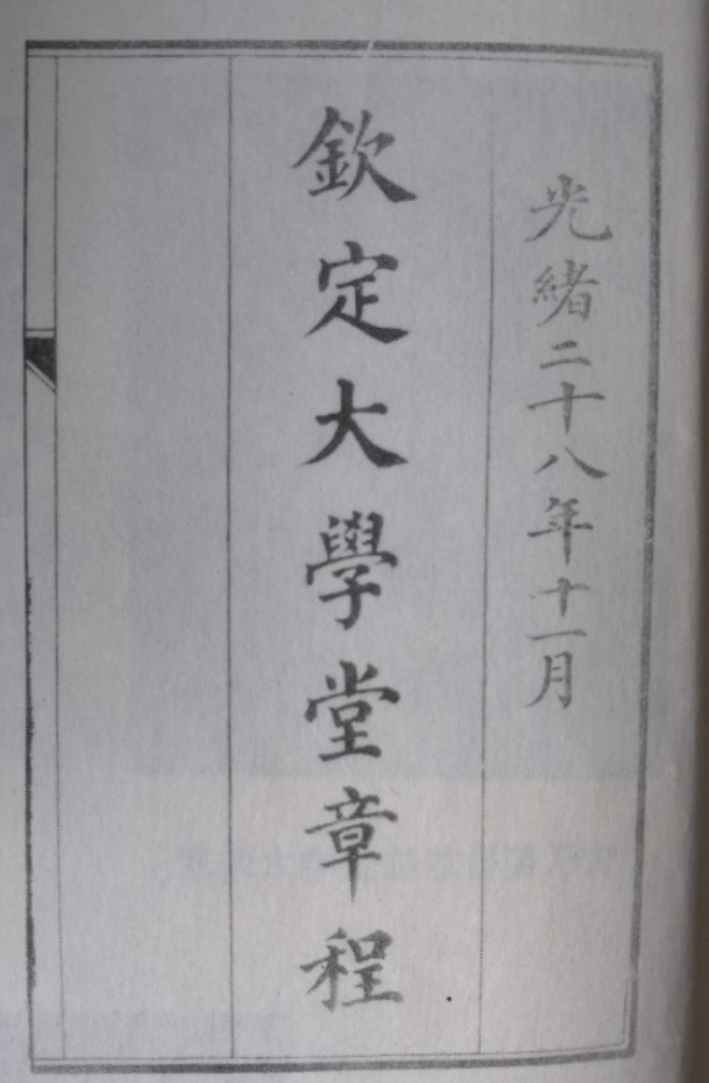 光緒二十八年十一月
欽定大學堂章程